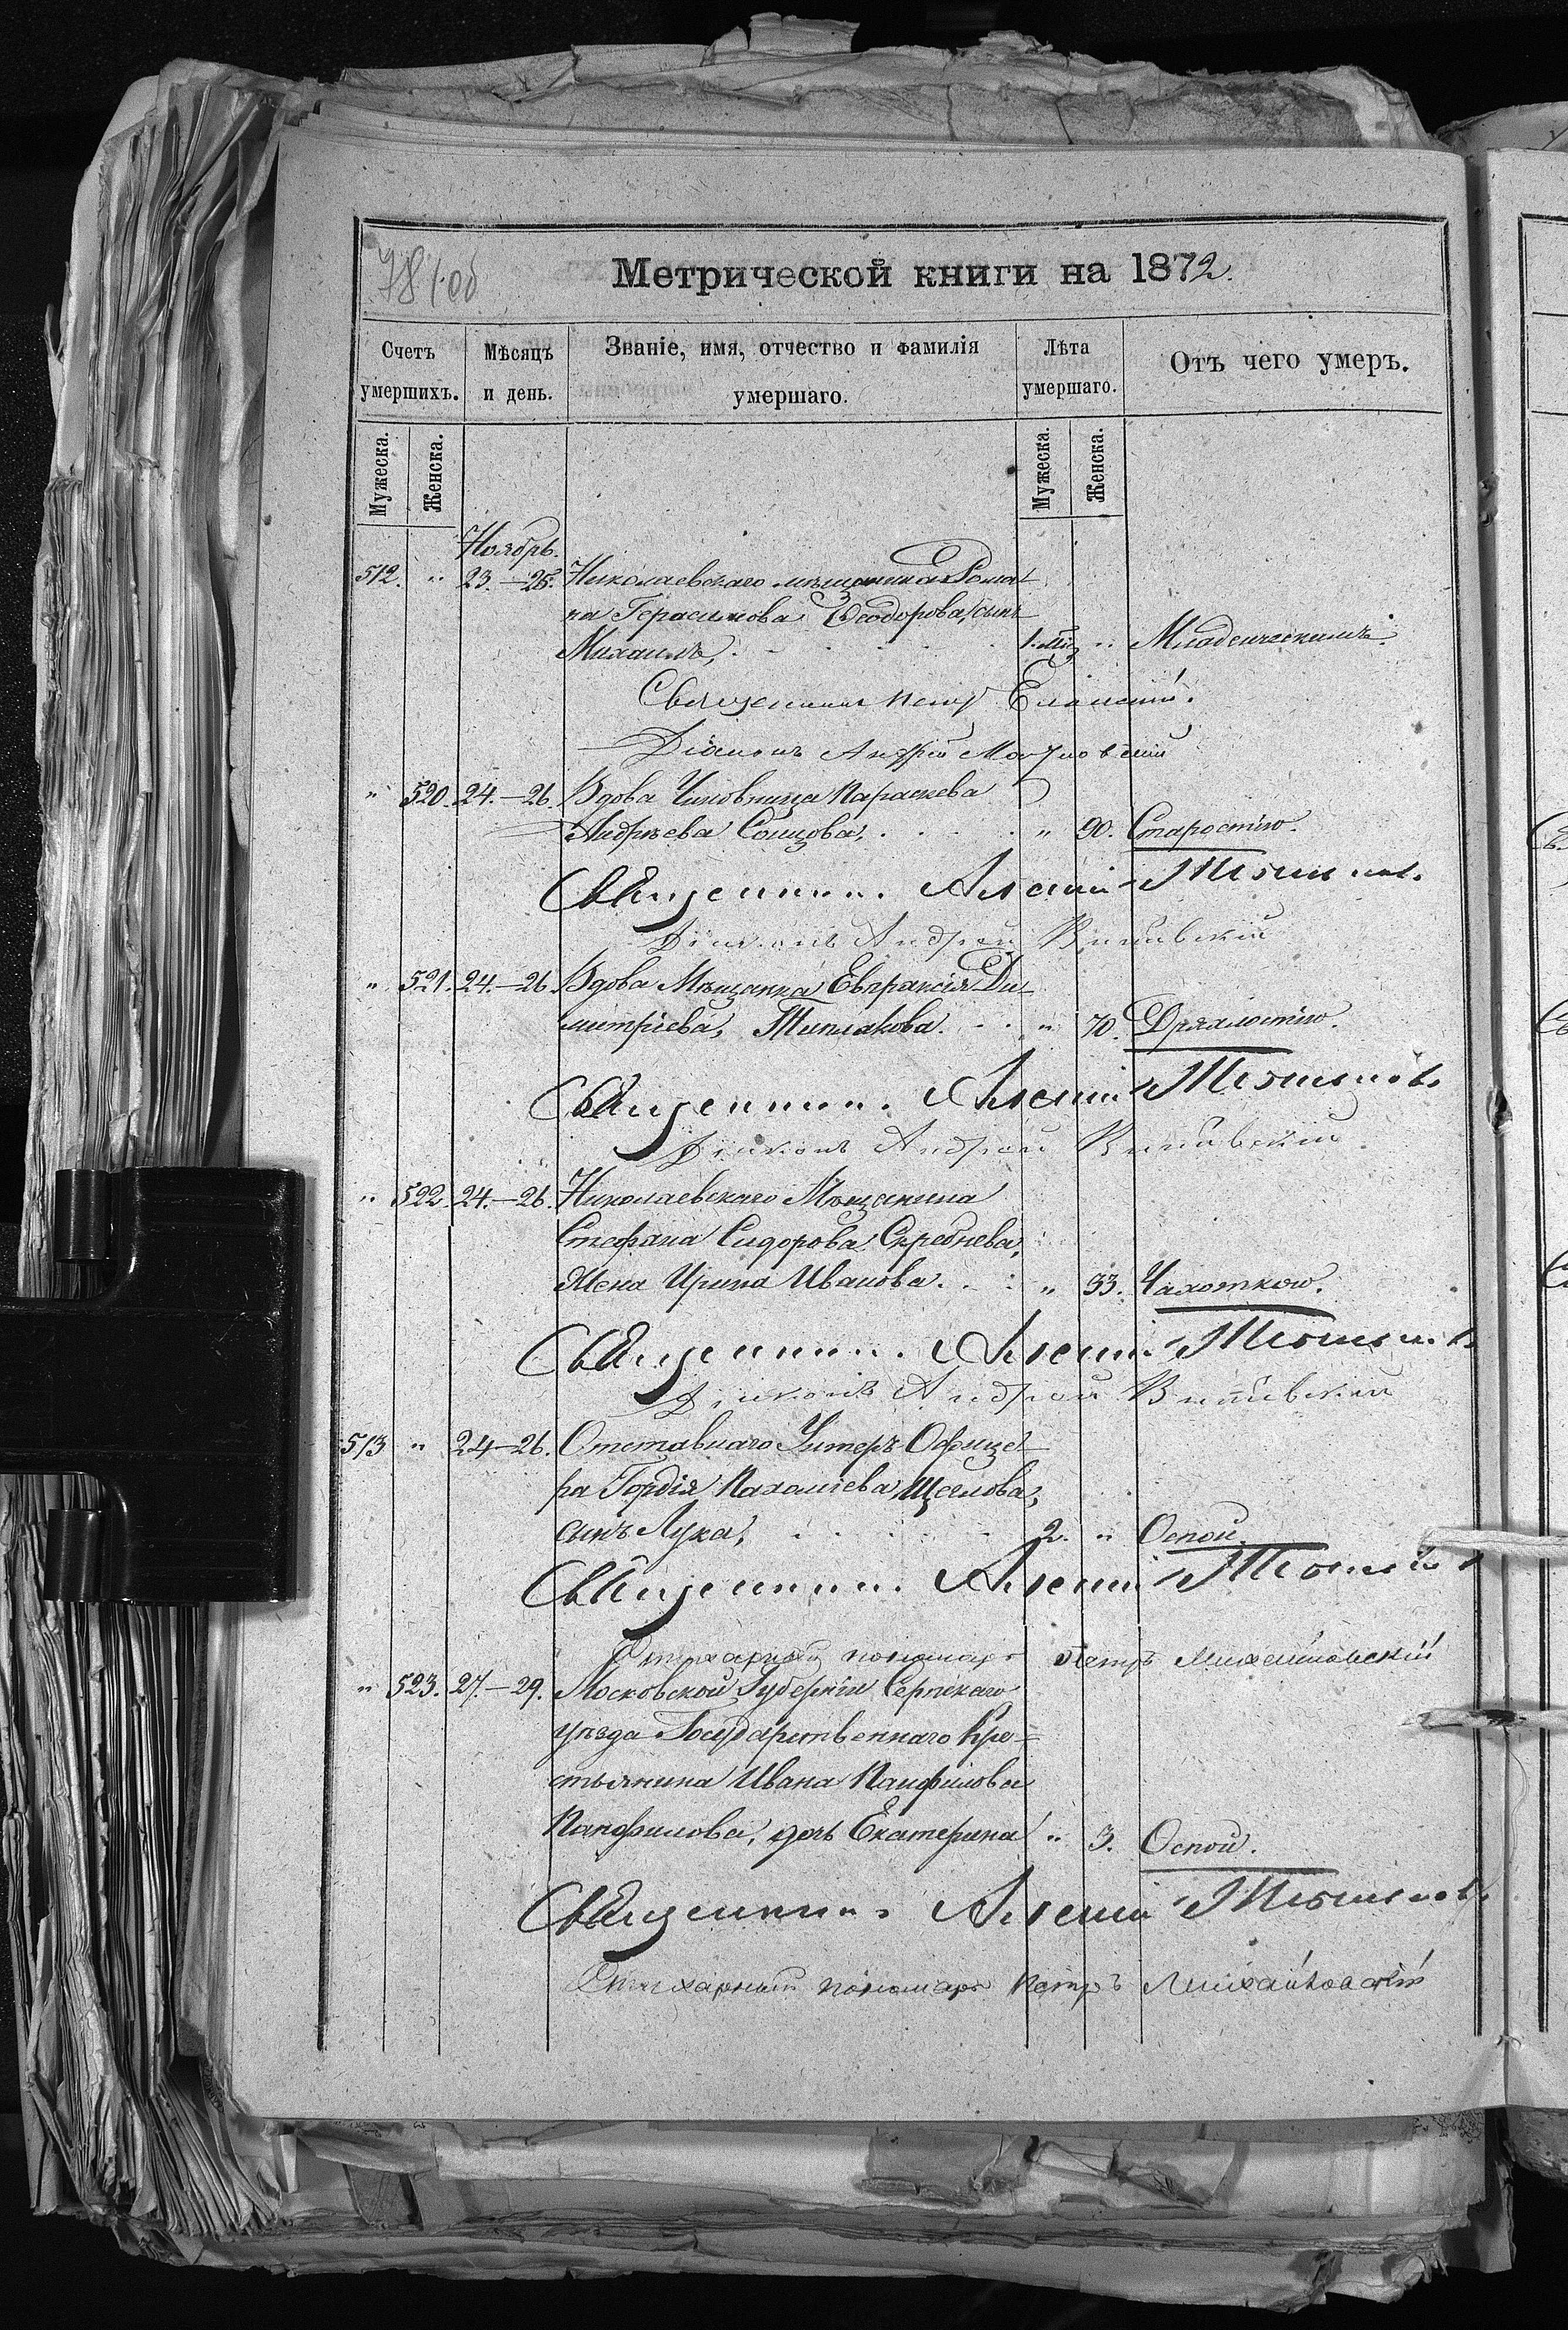 781 об
Метрической книги на 1872.
Счетъ умершихъ. Мѣсяцъ и день. Званіе, имя, отчество и фамилія умершаго. Лѣта умершаго. Отъ чего умеръ.
Мужеска. Женска. Мужеска. Женска.
Ноябрь.
512. " 23.—25. Николаевскаго мѣщанина Рома-
на Герасимова Ѳеодорова, сынъ
Михаилъ, 1. мѣс. " Младенческимъ.
Священникъ Петръ
Діаконъ Андрей
" 520. 24.—26. Вдова Чиновница Параскева
Андреева " 90. Старостію.
Священникъ Алексій
Діаконъ Андрей
" 521. 24.—26. Вдова Мѣщанка Евпраксія Ди-
митріева, Типлакова. " 70. Дряхлостію.
Священникъ Алексій
Діаконъ Андрей
" 522. 24.—26. Николаевскаго Мѣщанина
Стефана Сидорова Скребнева,
жена Ирина Иванова. " 33. Чахоткою.
Священникъ Алексій
Діаконъ Андрей
513 " 24—26. Отставнаго Унтеръ Офице-
ра Гордія Пахоміева Щеглова,
сынъ Лука, 2. " Оспой.
Священникъ Алексій
Стихарный пономарь Петръ Михайловскій
" 523. 27.—29. Московской Губерніи Серпскаго
уѣзда Государственнаго Кре-
стьянина Ивана Панфилова
Панфилова, дочь Екатерина " 3. Оспой.
Священникъ Алексій
Стихарный пономарь Петръ Михайловскій